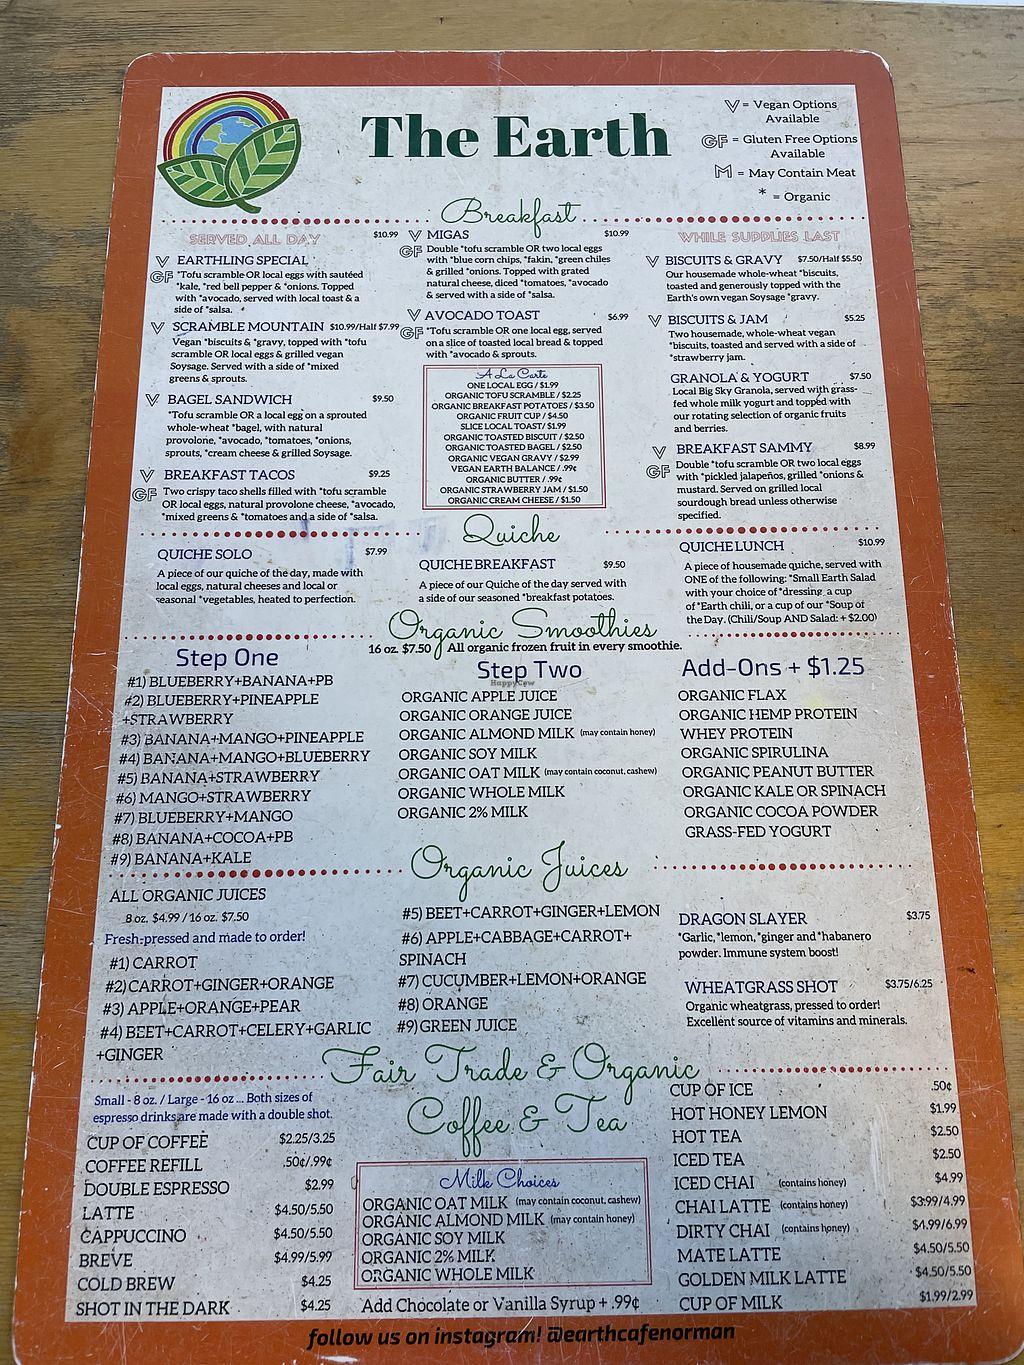 The Earth
V = Vegan Options
Available
GF = Gluten Free Options
Available
M = May Contain Meat
* = Organic
Breakfast
SERVED ALL DAY
$10.99
V EARTHLING SPECIAL
GF *Tofu scramble OR local eggs with sautéed
*kale, *red bell pepper & *onions. Topped
with *avocado, served with local toast & a
side of *salsa.
V SCRAMBLE MOUNTAIN $10.99/Half $7.99
Vegan *biscuits & *gravy, topped with *tofu
scramble OR local eggs & grilled vegan
Soysage. Served with a side of *mixed
greens & sprouts.
V BAGEL SANDWICH $9.50
*Tofu scramble OR a local egg on a sprouted
whole-wheat *bagel, with natural
provolone, *avocado, *tomatoes, *onions,
sprouts, *cream cheese & grilled Soysage.
V BREAKFAST TACOS $9.25
GF Two crispy taco shells filled with *tofu scramble
OR local eggs, natural provolone cheese, *avocado,
*mixed greens & *tomatoes and a side of *salsa.
V MIGAS $10.99
GF Double *tofu scramble OR two local eggs
with *blue corn chips, *fakin, *green chiles
& grilled *onions. Topped with grated
natural cheese, diced *tomatoes, *avocado
& served with a side of *salsa.
V AVOCADO TOAST $6.99
GF *Tofu scramble OR one local egg, served
on a slice of toasted local bread & topped
with *avocado & sprouts.
A La Carte
ONE LOCAL EGG / $1.99
ORGANIC TOFU SCRAMBLE / $2.25
ORGANIC BREAKFAST POTATOES / $3.50
ORGANIC FRUIT CUP / $4.50
SLICE LOCAL TOAST/ $1.99
ORGANIC TOASTED BISCUIT / $2.50
ORGANIC TOASTED BAGEL / $2.50
ORGANIC VEGAN GRAVY / $2.99
VEGAN EARTH BALANCE / .99¢
ORGANIC BUTTER / .99¢
ORGANIC STRAWBERRY JAM / $1.50
ORGANIC CREAM CHEESE / $1.50
WHILE SUPPLIES LAST
V BISCUITS & GRAVY $7.50/Half $5.50
Our housemade whole-wheat *biscuits,
toasted and generously topped with the
Earth's own vegan Soysage *gravy.
V BISCUITS & JAM $5.25
Two housemade, whole-wheat vegan
*biscuits, toasted and served with a side of
*strawberry jam.
GRANOLA & YOGURT $7.50
Local Big Sky Granola, served with grass-
fed whole milk yogurt and topped with
our rotating selection of organic fruits
and berries.
V BREAKFAST SAMMY $8.99
GF Double *tofu scramble OR two local eggs
with *pickled jalapeños, grilled *onions &
mustard. Served on grilled local
sourdough bread unless otherwise
specified.
Quiche
QUICHE SOLO $7.99
A piece of our quiche of the day, made with
local eggs, natural cheeses and local or
seasonal *vegetables, heated to perfection.
QUICHE BREAKFAST $9.50
A piece of our Quiche of the day served with
a side of our seasoned *breakfast potatoes.
QUICHE LUNCH $10.99
A piece of housemade quiche, served with
ONE of the following: *Small Earth Salad
with your choice of *dressing, a cup
of *Earth chili, or a cup of our *Soup of
the Day. (Chili/Soup AND Salad: + $2.00)
Organic Smoothies
16 oz. $7.50 All organic frozen fruit in every smoothie.
Step One
#1) BLUEBERRY+BANANA+PB
#2) BLUEBERRY+PINEAPPLE
+STRAWBERRY
#3) BANANA+MANGO+PINEAPPLE
#4) BANANA+MANGO+BLUEBERRY
#5) BANANA+STRAWBERRY
#6) MANGO+STRAWBERRY
#7) BLUEBERRY+MANGO
#8) BANANA+COCOA+PB
#9) BANANA+KALE
Step Two
HappyCow
ORGANIC APPLE JUICE
ORGANIC ORANGE JUICE
ORGANIC ALMOND MILK (may contain honey)
ORGANIC SOY MILK
ORGANIC OAT MILK (may contain coconut, cashew)
ORGANIC WHOLE MILK
ORGANIC 2% MILK
Add-Ons + $1.25
ORGANIC FLAX
ORGANIC HEMP PROTEIN
WHEY PROTEIN
ORGANIC SPIRULINA
ORGANIC PEANUT BUTTER
ORGANIC KALE OR SPINACH
ORGANIC COCOA POWDER
GRASS-FED YOGURT
Organic Juices
ALL ORGANIC JUICES
8 oz. $4.99 / 16 oz. $7.50
Fresh-pressed and made to order!
#1) CARROT
#2) CARROT+GINGER+ORANGE
#3) APPLE+ORANGE+PEAR
#4) BEET+CARROT+CELERY+GARLIC
+GINGER
#5) BEET+CARROT+GINGER+LEMON
#6) APPLE+CABBAGE+CARROT+
SPINACH
#7) CUCUMBER+LEMON+ORANGE
#8) ORANGE
#9) GREEN JUICE
DRAGON SLAYER $3.75
*Garlic, *lemon, *ginger and *habanero
powder. Immune system boost!
WHEATGRASS SHOT $3.75/6.25
Organic wheatgrass, pressed to order!
Excellent source of vitamins and minerals.
Fair Trade & Organic
Coffee & Tea
Small - 8 oz. / Large - 16 oz ... Both sizes of
espresso drinks are made with a double shot.
CUP OF COFFEE $2.25/3.25
COFFEE REFILL .50¢/.99¢
DOUBLE ESPRESSO $2.99
LATTE $4.50/5.50
CAPPUCCINO $4.50/5.50
BREVE $4.99/5.99
COLD BREW $4.25
SHOT IN THE DARK $4.25
Milk Choices
ORGANIC OAT MILK (may contain coconut, cashew)
ORGANIC ALMOND MILK (may contain honey)
ORGANIC SOY MILK
ORGANIC 2% MILK
ORGANIC WHOLE MILK
Add Chocolate or Vanilla Syrup + .99¢
CUP OF ICE .50¢
HOT HONEY LEMON $1.99
HOT TEA $2.50
ICED TEA $2.50
ICED CHAI (contains honey) $4.99
CHAI LATTE (contains honey) $3.99/4.99
DIRTY CHAI (contains honey) $4.99/6.99
MATE LATTE $4.50/5.50
GOLDEN MILK LATTE $4.50/5.50
CUP OF MILK $1.99/2.99
follow us on instagram! @earthcafenorman